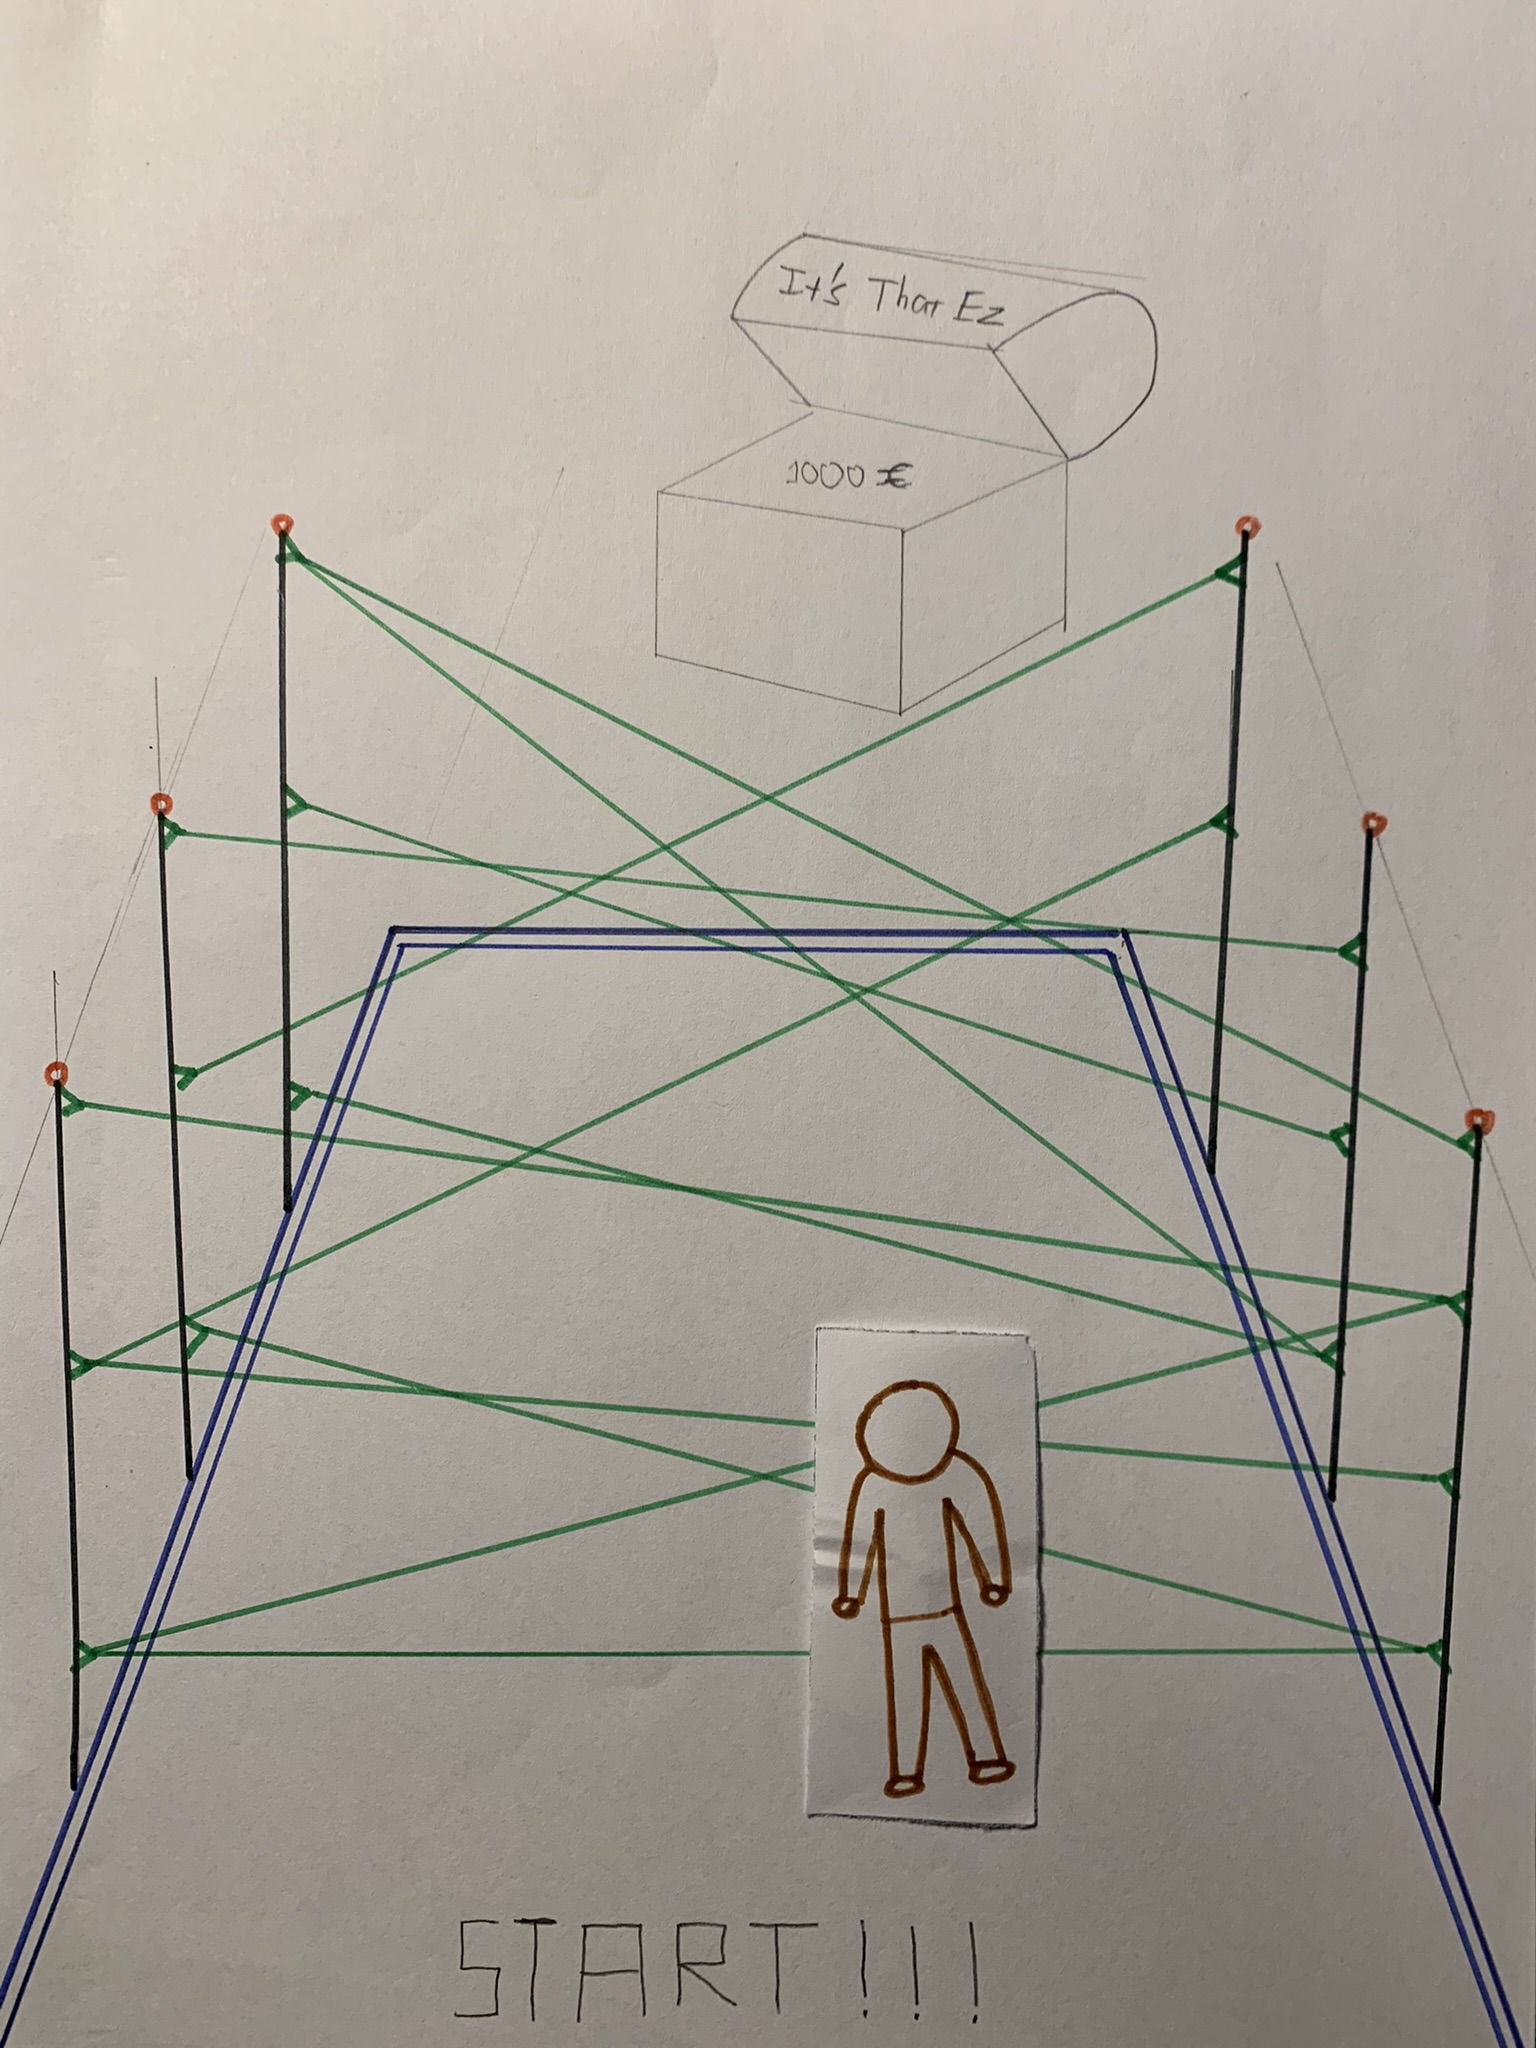 It's That Ez
1000 €
START!!!